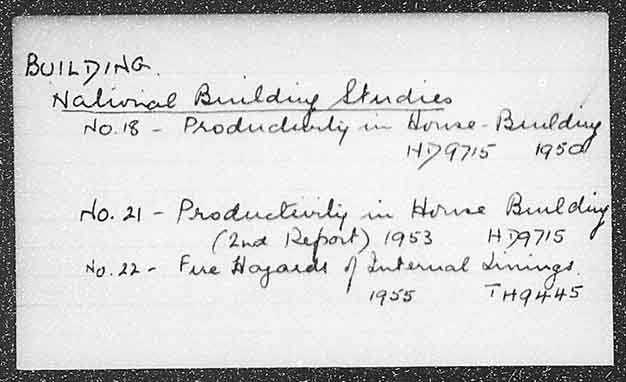 BUILDING.
National Building Studies
No. 18 - Productivity in House-Building
HD9715 1950
No. 21 - Productivity in House Building
(2nd Report) 1953 HD9715
No. 22 - Fire Hazards of Internal Linings.
1955 TH9445